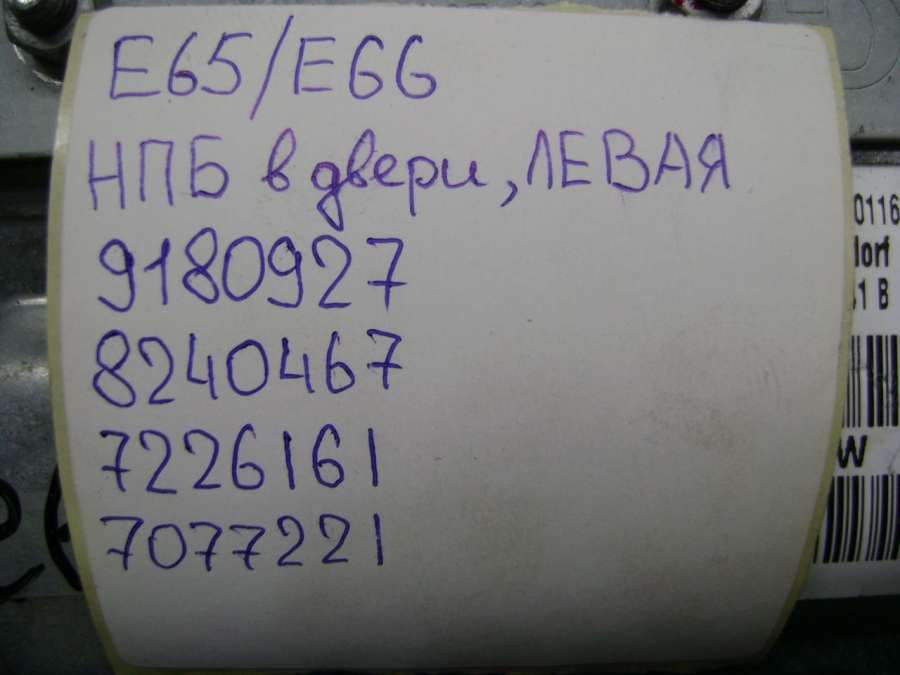 E65/E66
НПБ в двери, ЛЕВАЯ
9180927
8240467
7226161
7077221
0116
lorf
1 B
W